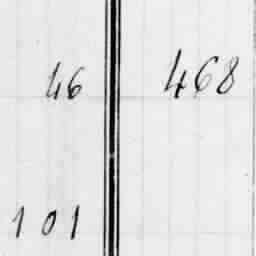 46 468
101